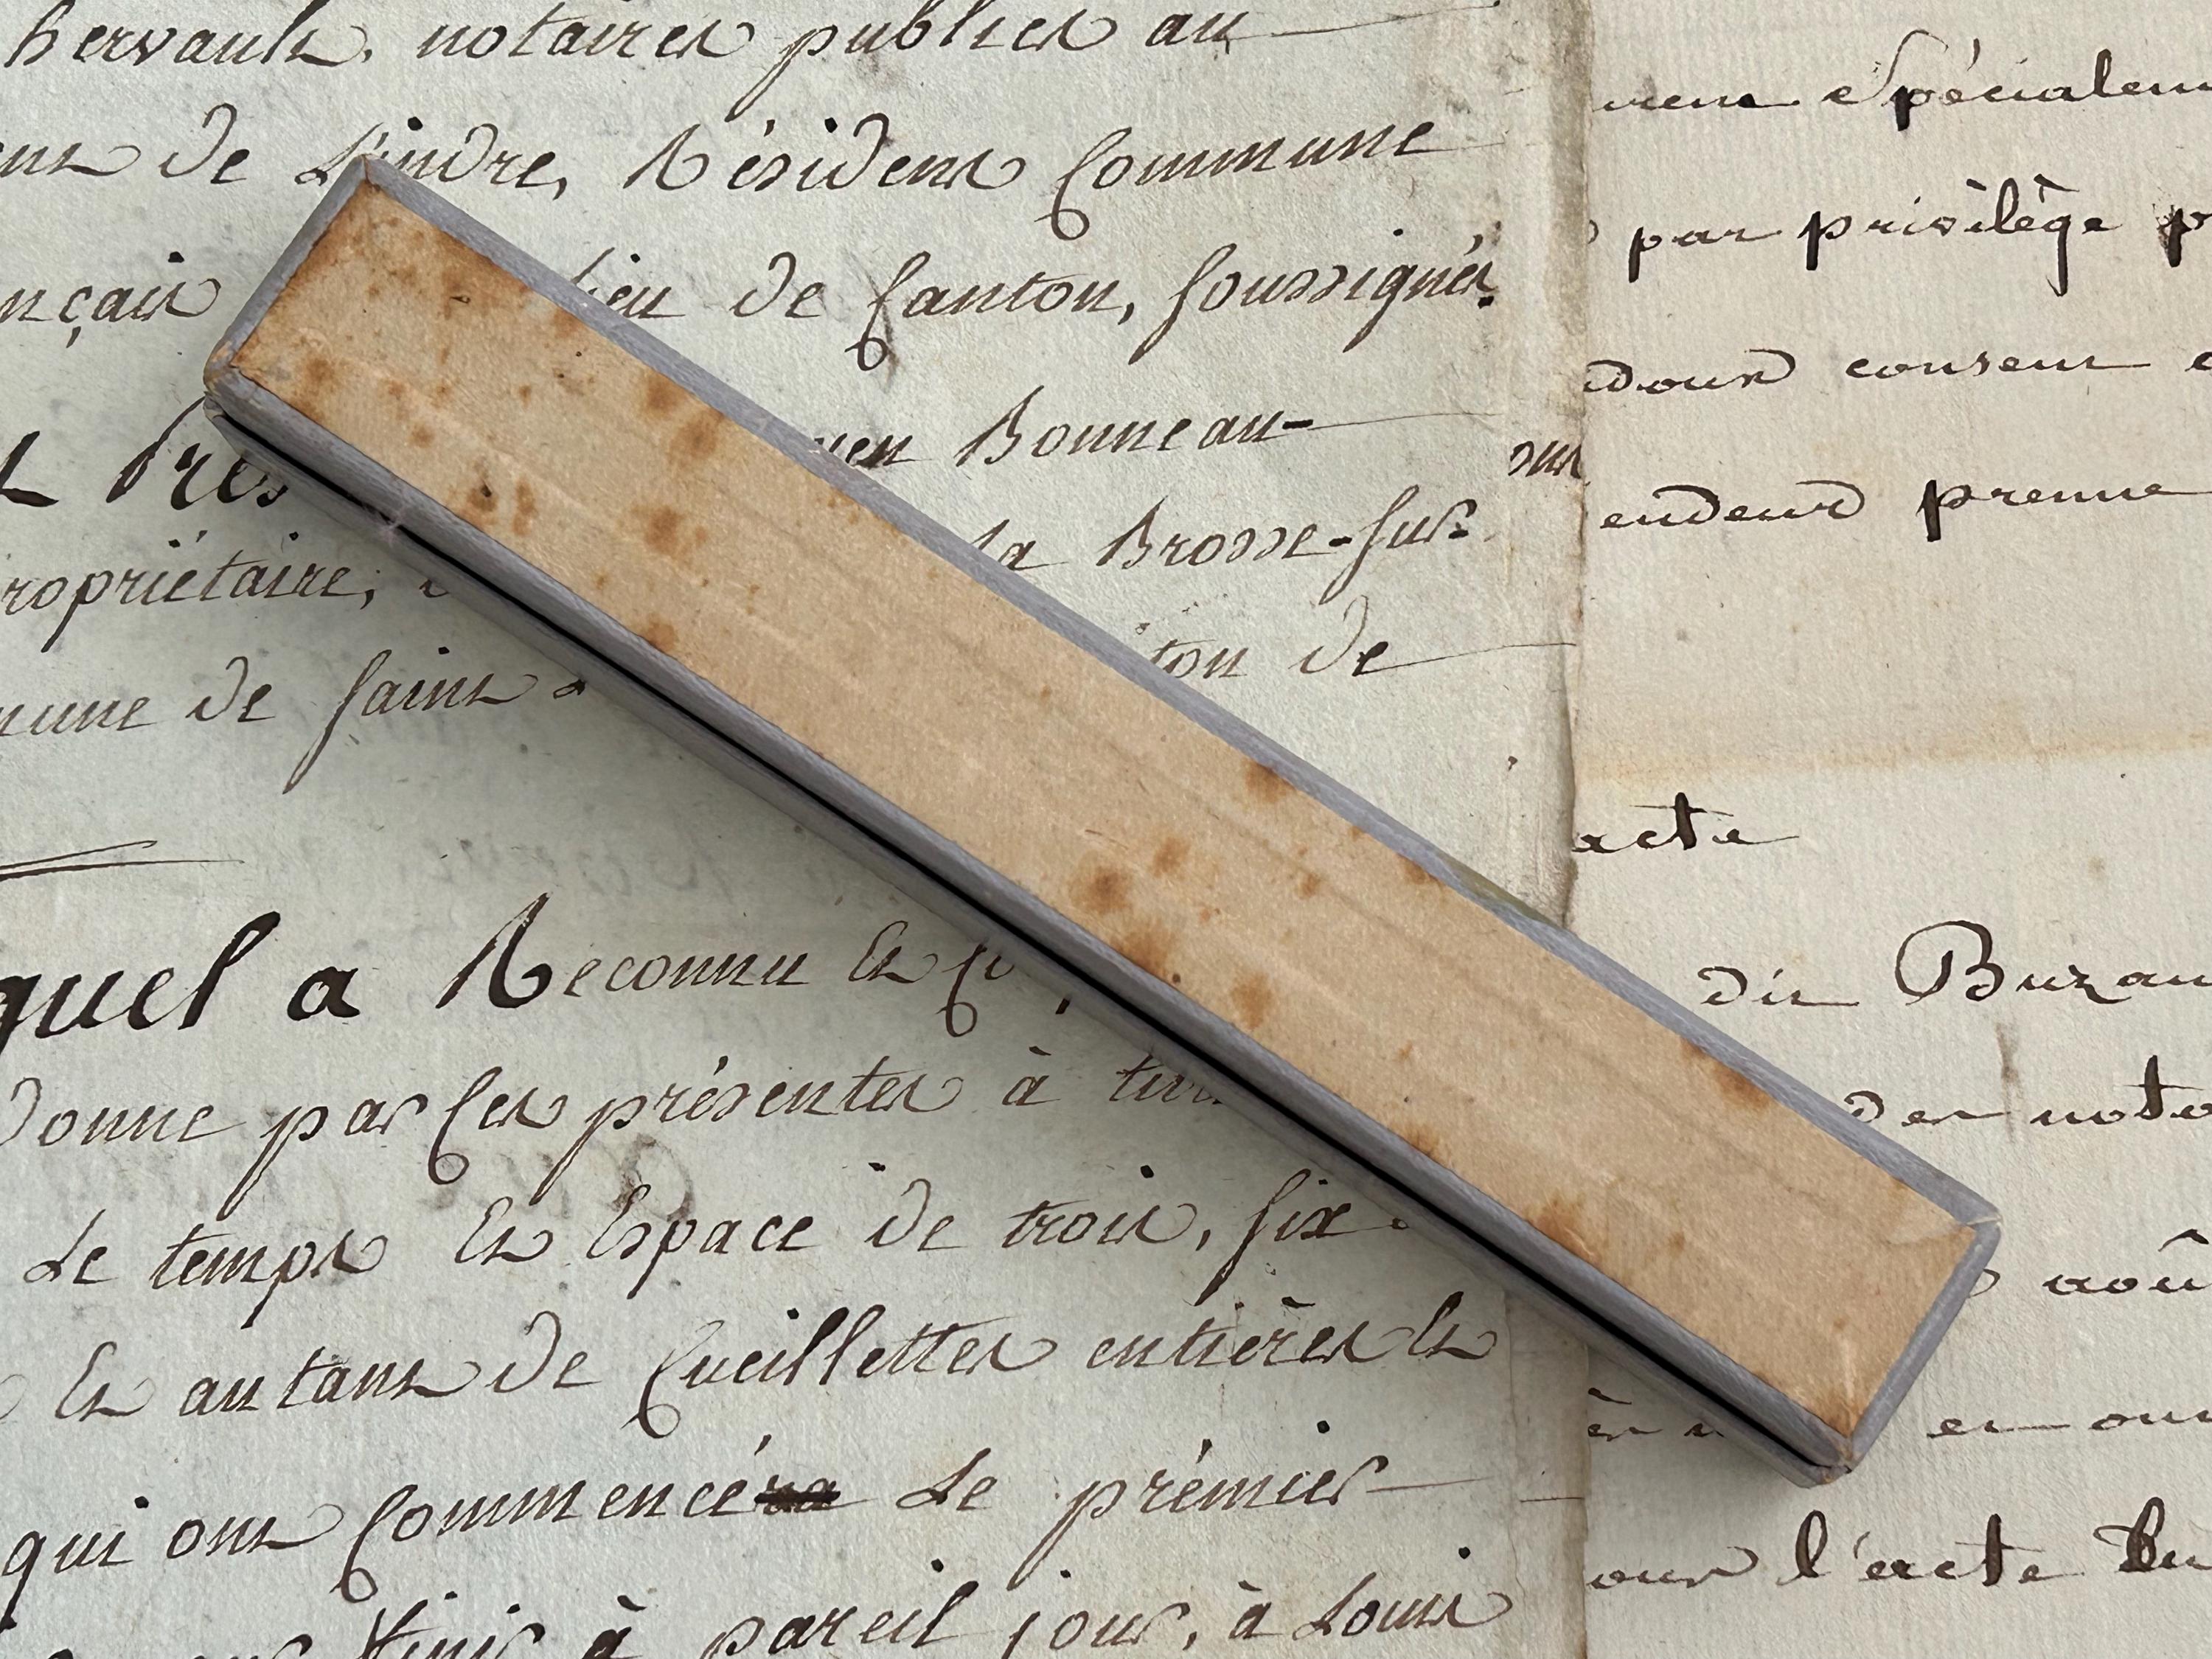 hervault, notaires publics au
de L'indre, Résident Commune
nçais lieu de Canton, soussignés.
t Prés yen Bonneau-
ropriétaire, la Brosse-sur-
mune de saint ton de
quel a Reconnu Et
Donne par Ces présentes à
Le temps Et Espace de trois, six
Et autant de Cueillettes entières Et
qui ont Commencé Le prémier
finir à pareil jour, à Louis
Spécialem
par privilège p
consent
sur
endeur prenne
acte
dit Buzan
des nota
aoû
et
our l'acte